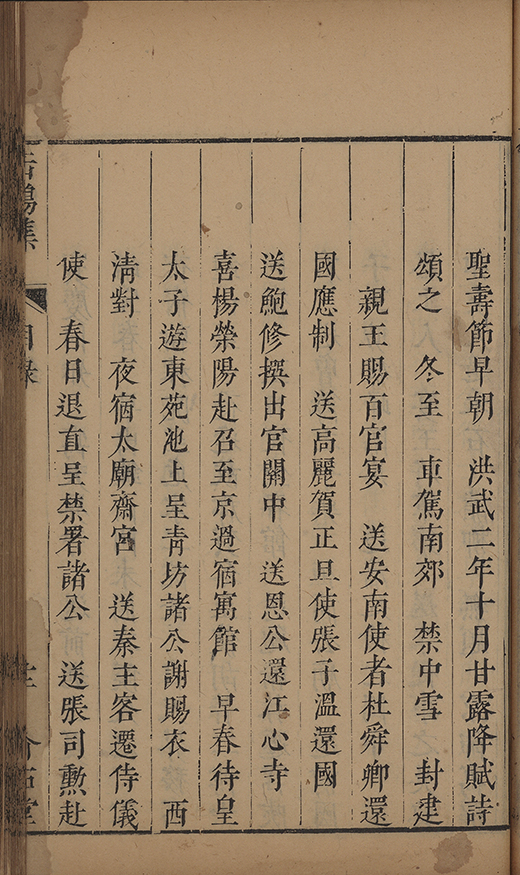 聖壽節早朝　洪武二年十月甘露降賦詩
頌之　冬至　車駕南郊　禁中雪　封建
親王賜百官宴　送安南使者杜舜卿還
國應制　送高麗賀正旦使張子溫還國
送鮑修撰出官關中　送恩公還江心寺
喜楊滎陽赴召至京過宿寓館　早春待皇
太子遊東苑池上呈青坊諸公謝賜衣　西
清對　夜宿太廟齋宮　送秦主客遷侍儀
使　春日退直呈禁署諸公　送張司勲赴
目錄